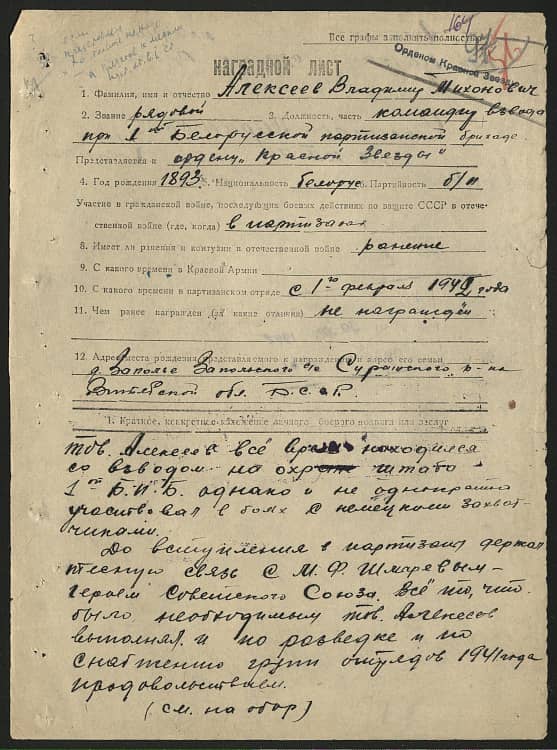 164
Все графы заполнять полностью
Орденом Красной Звезды
НАГРАДНОЙ ЛИСТ
1. Фамилия, имя и отчество Алексеев Владимир Тихонович
2. Звание рядовой 3. Должность, часть командир взвода
при 1ой Белорусской партизанской бригаде
Представляется к ордену „Красной Звезды"
4. Год рождения 1893 5. Национальность белорус 6. Партийность б/п
Участие в гражданской войне, последующих боевых действиях по защите СССР в отече-
ственной войне (где, когда) в партизанах
8. Имеет ли ранения и контузии в отечественной войне ранение
9. С какого времени в Красной Армии
10. С какого времени в партизанском отряде с 1го февраля 1942 года
11. Чем ранее награжден (за какие отличия) не награждён
12. Адрес места рождения представляемого к награждению и адрес его семьи
д. Заполье Запольского с/с Суражского р-на
Витебской обл. Б.С.С.Р.
1. Краткое, конкретное изложение личного боевого подвига или заслуг
тов. Алексеев всё время находился
со взводом на охране штаба
1ой Б.П.Б. однако и не однократно
участвовал в боях с немецкими захват-
чиками.
До вступления в партизаны держал
тесную связь с М.Ф. Шмыревым-
героем Советского Союза. Всё то, что
было необходимым тов. Алексеев
выполнял и по разведке и по
снабжению групп отрядов 1941 года
продовольствием.
(см. на обор)